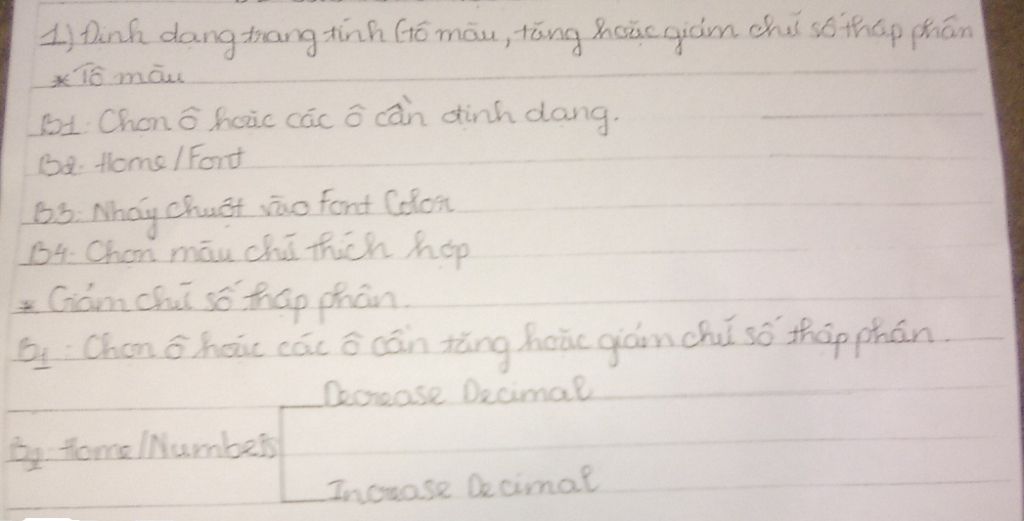 1.) Định dạng trang tính (tô màu, tăng hoặc giảm chữ số thập phân
* Tô màu
B1: Chọn ô hoặc các ô cần định dạng.
B2: Home/Font
B3: Nháy chuột vào Font Color
B4: Chọn màu chữ thích hợp
* Giảm chữ số thập phân.
B1: Chọn ô hoặc các ô cần tăng hoặc giảm chữ số thập phân.
Decrease Decimal
B2: Home/Numbers
Increase Decimal